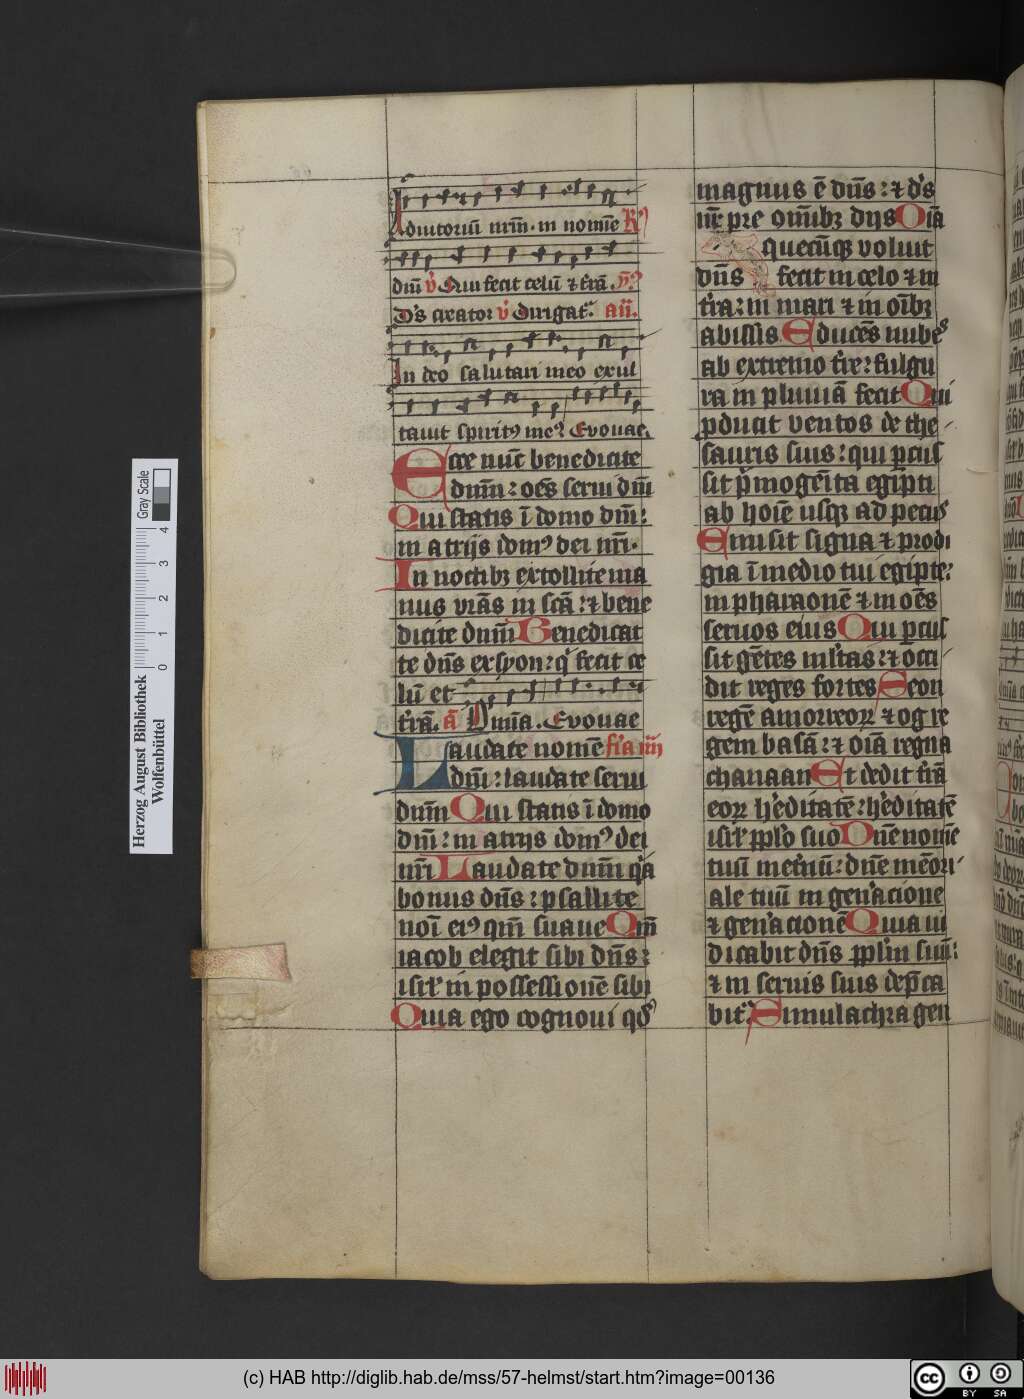 Adiutoriū nrm̄. in nomīe R)
dn̄i v̓ Qui fecit celū ⁊ t̓rā. ps
D's creator v̓ Dirigat᷑. añ.
In deo salutari meo exul
tauit spiritꝯ meꝯ Evouae.
Ecce nūc benedicite
dnm̄: oēs serui dn̄i
Qui statis ī domo dn̄i:
in atrijs domꝯ dei nr̄i.
In noctibꝫ extollite ma
nus vrās in scā: ⁊ bene
dicite dnm̄ Benedicat
te dn̄s ex syon: q̓ fecit ce
lū et
t̓rā. ā Omīa. Evouae
Laudate nomē fr̓a iiij
dn̄i: laudate serui
dnm̄ Qui statis ī domo
dn̄i: in atrijs domꝯ dei
nr̄i Laudate dnm̄ q̓a
bonus dn̄s: psallite
noī eiꝯ qm̄ suaue Qm̄
iacob elegit sibi dn̄s:
isrl̓ in possessionē sibi
Quia ego cognoui qd̓
magnus ē dn̄s: ⁊ d's
nr̄ pre omībꝫ dijs Oīa
quecūqꝫ voluit
dn̄s fecit in celo ⁊ in
t̓ra: in mari ⁊ in oībꝫ
abissis. Educēs nubes
ab extremo t̓re: fulgu
ra in pluuiā fecit Qui
ꝓducit ventos de the
sauris suis: qui ꝑcus
sit p̓mogēita egipti
ab hoīe usqꝫ ad pecus
Emisit signa ⁊ prodi
gia ī medio tui egipte:
in pharaonē ⁊ in oēs
seruos eius Qui ꝑcus
sit gētes ml̓tas: ⁊ occi
dit reges fortes Seon
regē amorreoꝝ ⁊ og re
gem basā: ⁊ oīa regna
chanaan Et dedit t̓rā
eoꝝ h̓editatē: h̓editatē
isrl̓ ppl̓o suo Dn̄e nomē
tuū inet̓nū: dn̄e mēori
ale tuū in gen̓acione
⁊ gen̓acionē Quia iu
dicabit dn̄s ppl̓m suū:
⁊ in seruis suis dep̄ca
bit᷑. Simulachra gen
Gray Scale
0 1 2 3 4
Herzog August Bibliothek
Wolfenbüttel
(c) HAB http://diglib.hab.de/mss/57-helmst/start.htm?image=00136
cc BY SA